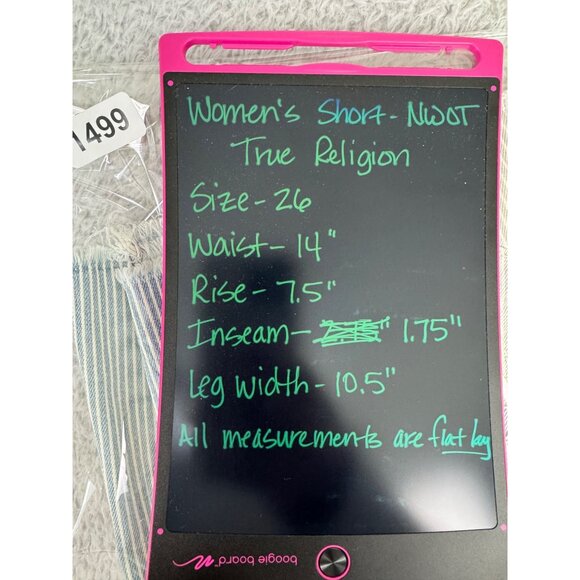 1499
Women's Short - NWOT
True Religion
Size - 26
Waist - 14"
Rise - 7.5"
Inseam - 1.75"
Leg width - 10.5"
All measurements are flat lay
boogie board™